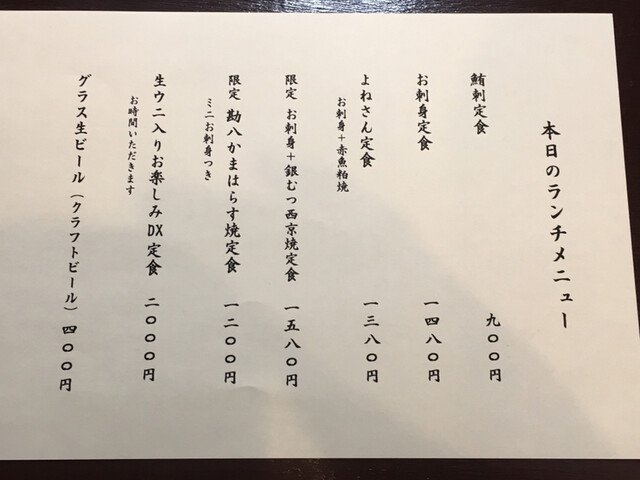 本日のランチメニュー
鮪刺定食 九〇〇円
お刺身定食 一四八〇円
よねさん定食 一三八〇円
お刺身＋赤魚粕焼
限定 お刺身＋銀むつ西京焼定食 一五八〇円
限定 勘八かまはらす焼定食 一二〇〇円
ミニお刺身つき
生ウニ入りお楽しみDX定食 二〇〇〇円
お時間いただきます
グラス生ビール（クラフトビール）四〇〇円